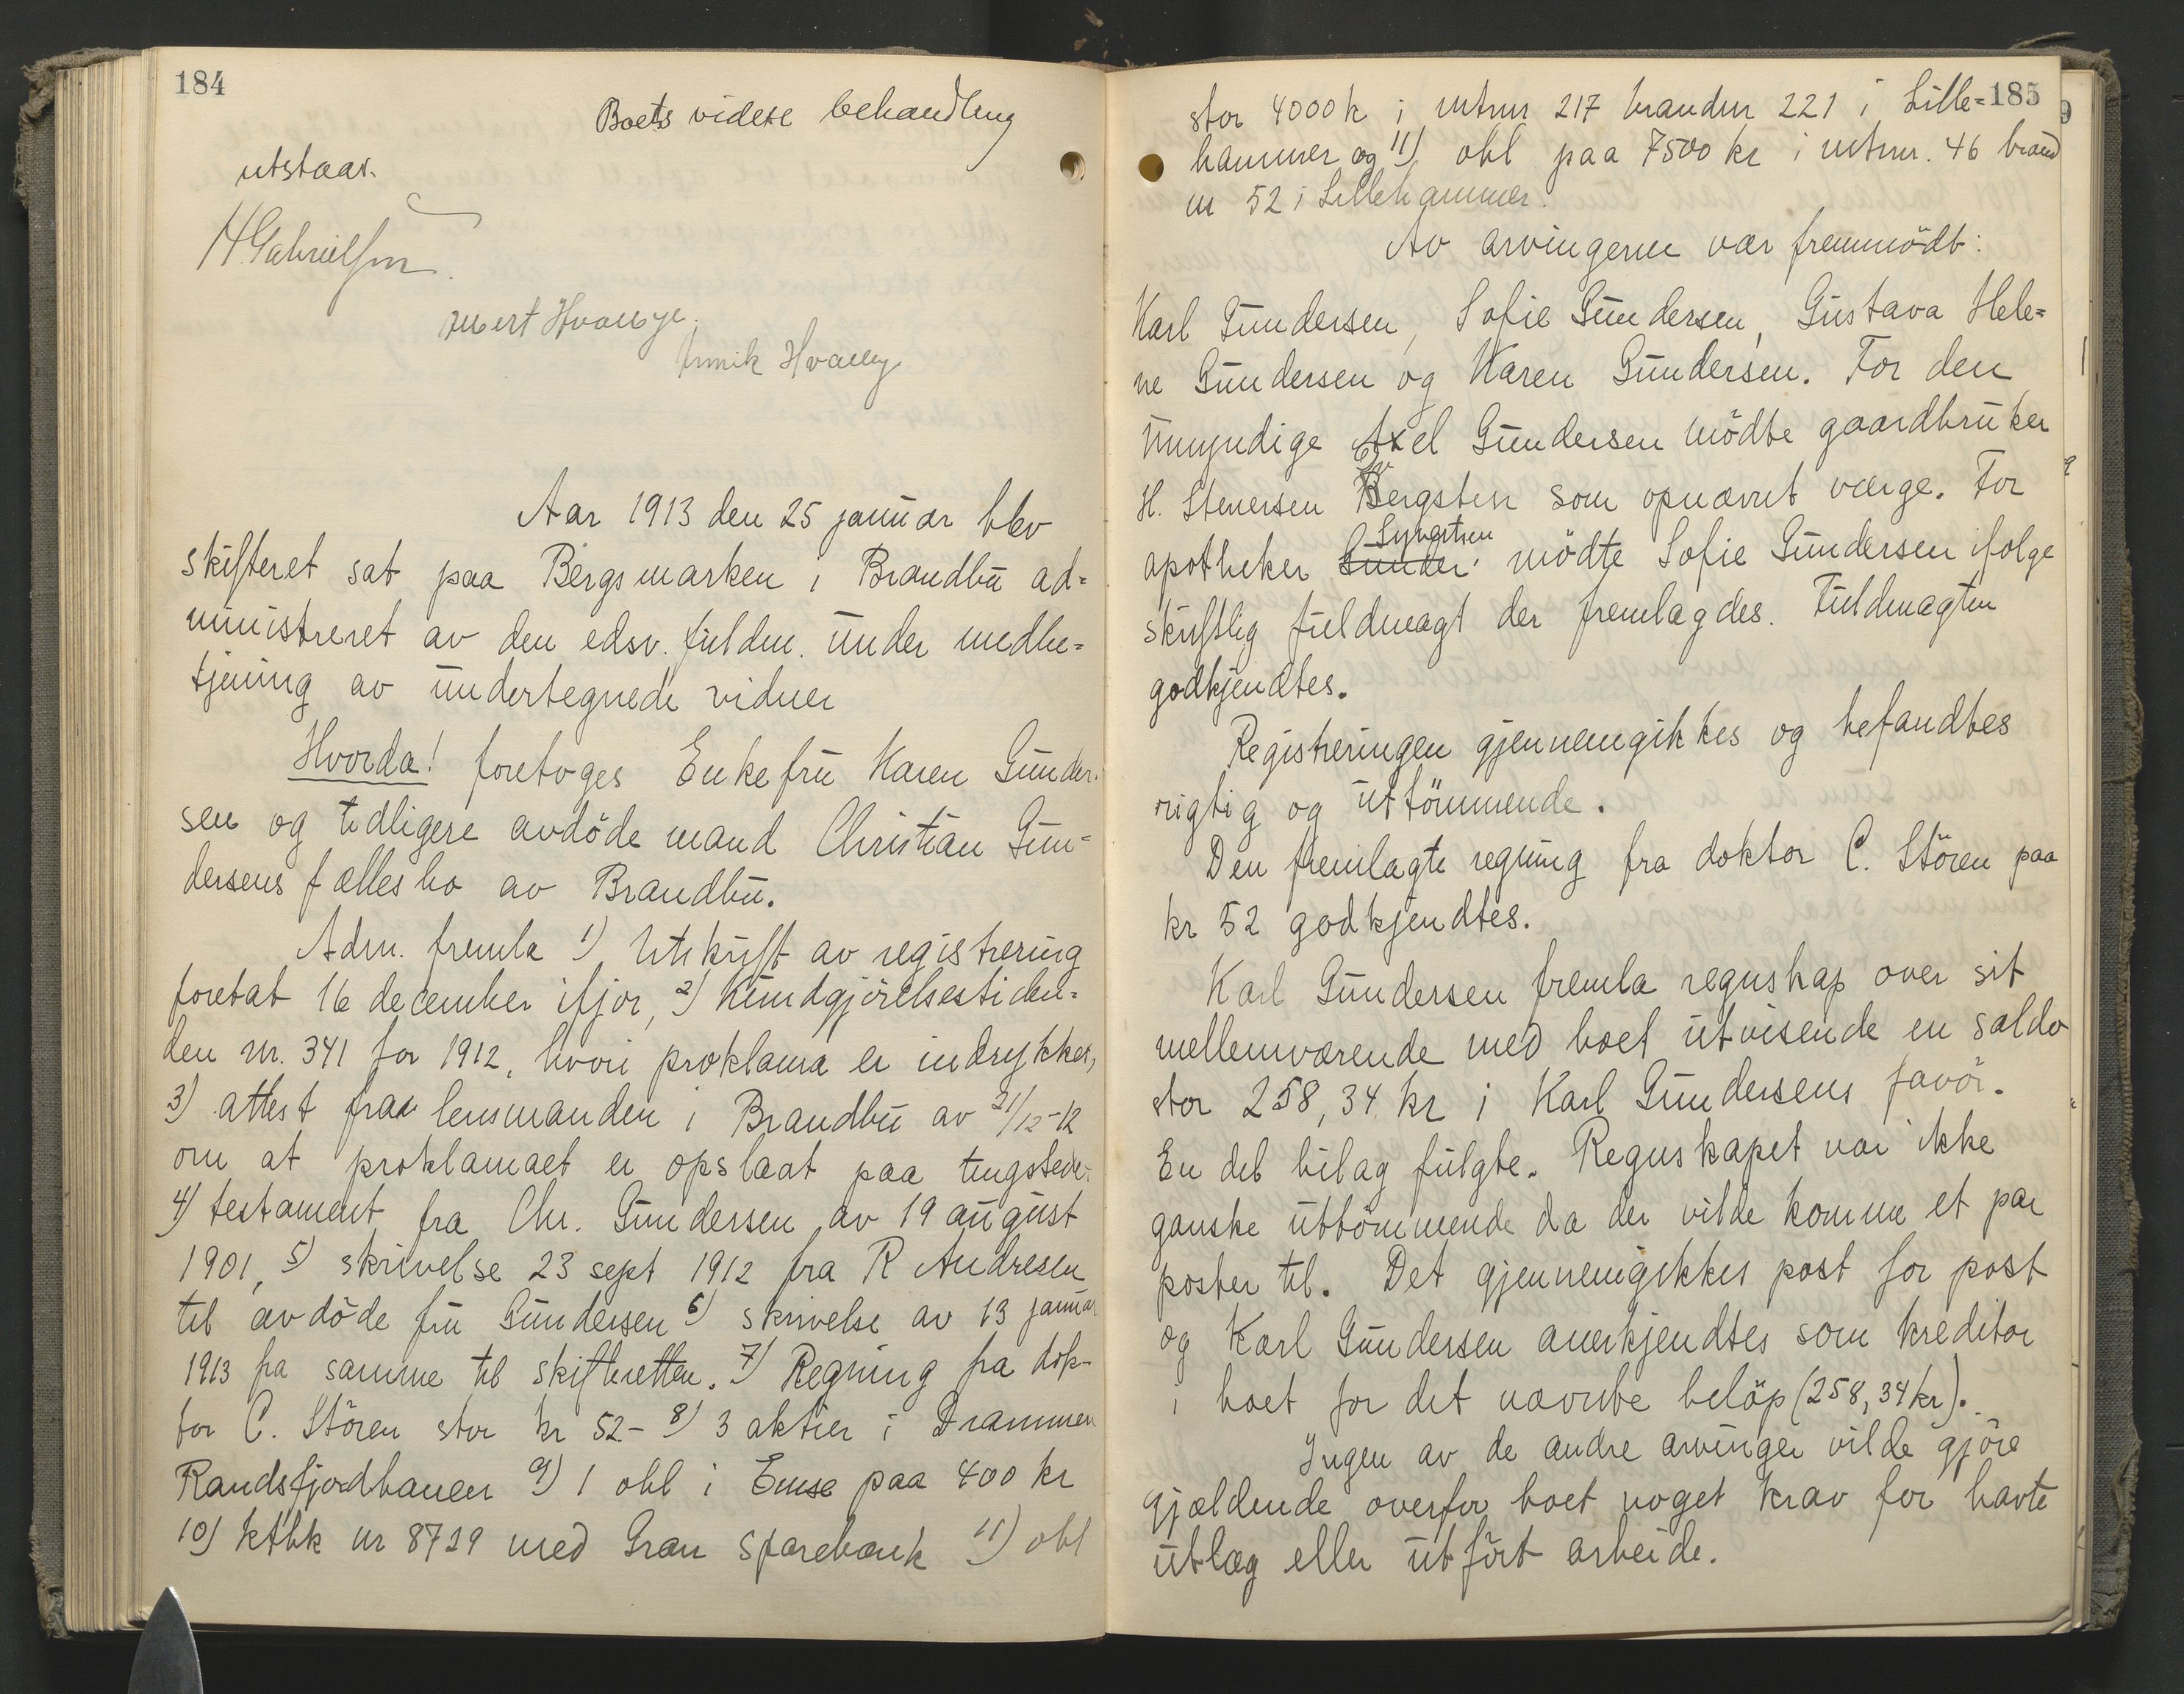 184
Boets videre behandling
utstaar.
H. Gabrielsen.
Aar 1913 den 25 januar blev
skifteret sat paa Bergsmarken i Brandbu ad=
ministreret av den edsv. fuldm. under medbe=
tjening av undertegnede vidner
Hvorda! foretoges Enkefru Karen Gunder.
sen og tidligere avdöde mand Christian Gun=
dersens fællesbo av Brandbu.
Adm. fremla 1) Utskrift av registrering
foretat 16 december ifjor, 2) Kundgjörelsestiden=
den nr. 341 for 1912, hvori proklama er indrykket,
3) attest fra lensmanden i Brandbu av 21/12-12
om at proklamaet er opslaat paa tingstedet.
4) testament fra Chr. Gundersen av 19 august
1901, 5) skrivelse 23 sept 1912 fra R Andresen
til avdöde fru Gundersen 6) skrivelse av 13 januar
1913 fra samme til skifteretten. 7) Regning fra dok-
tor C. Stören stor kr 52- 8) 3 aktier i Drammen
Randsfjordbanen 9) 1 obl i paa 400 kr
10) ktbk nr 8729 med Gran Sparebank 11) obl
185
stor 4000 k i mtrnr 217 brandnr 221 i Lille=
hammer og 11) obl paa 7500 kr i mtrnr. 46 brand
nr 52 i Lillehammer.
Av arvingerne var fremmödt:
Karl Gundersen, Sofie Gundersen, Gustava Hele=
ne Gundersen og Karen Gundersen. For den
umyndige Axel Gundersen mödte gaardbruker
H. Stenersen Bergsten som opnævnt værge. For
apotheker Gunder. mödte Sofie Gundersen ifolge
skriftlig fuldmagt der fremlagdes. Fuldmagten
godkjendtes.
Registreringen gjennemgikkes og befandtes
rigtig og uttömmende.
Den fremlagte regning fra doktor C. Stören paa
kr 52 godkjendtes.
Karl Gundersen fremla regnskap over sit
mellemværende med boet utvisende en saldo
stor 258,34 kr i Karl Gundersens favör.
En del bilag fulgte. Regnskapet var ikke
ganske uttömmende da der vilde komme et par
poster til. Det gjennemgikkes post for post
og Karl Gundersen anerkjendtes som kreditor
i boet for det nævnte belöp (258,34 kr).
Ingen av de andre arvinger vilde gjöre
gjældende overfor boet noget krav for havte
utlæg eller utfört arbeide.